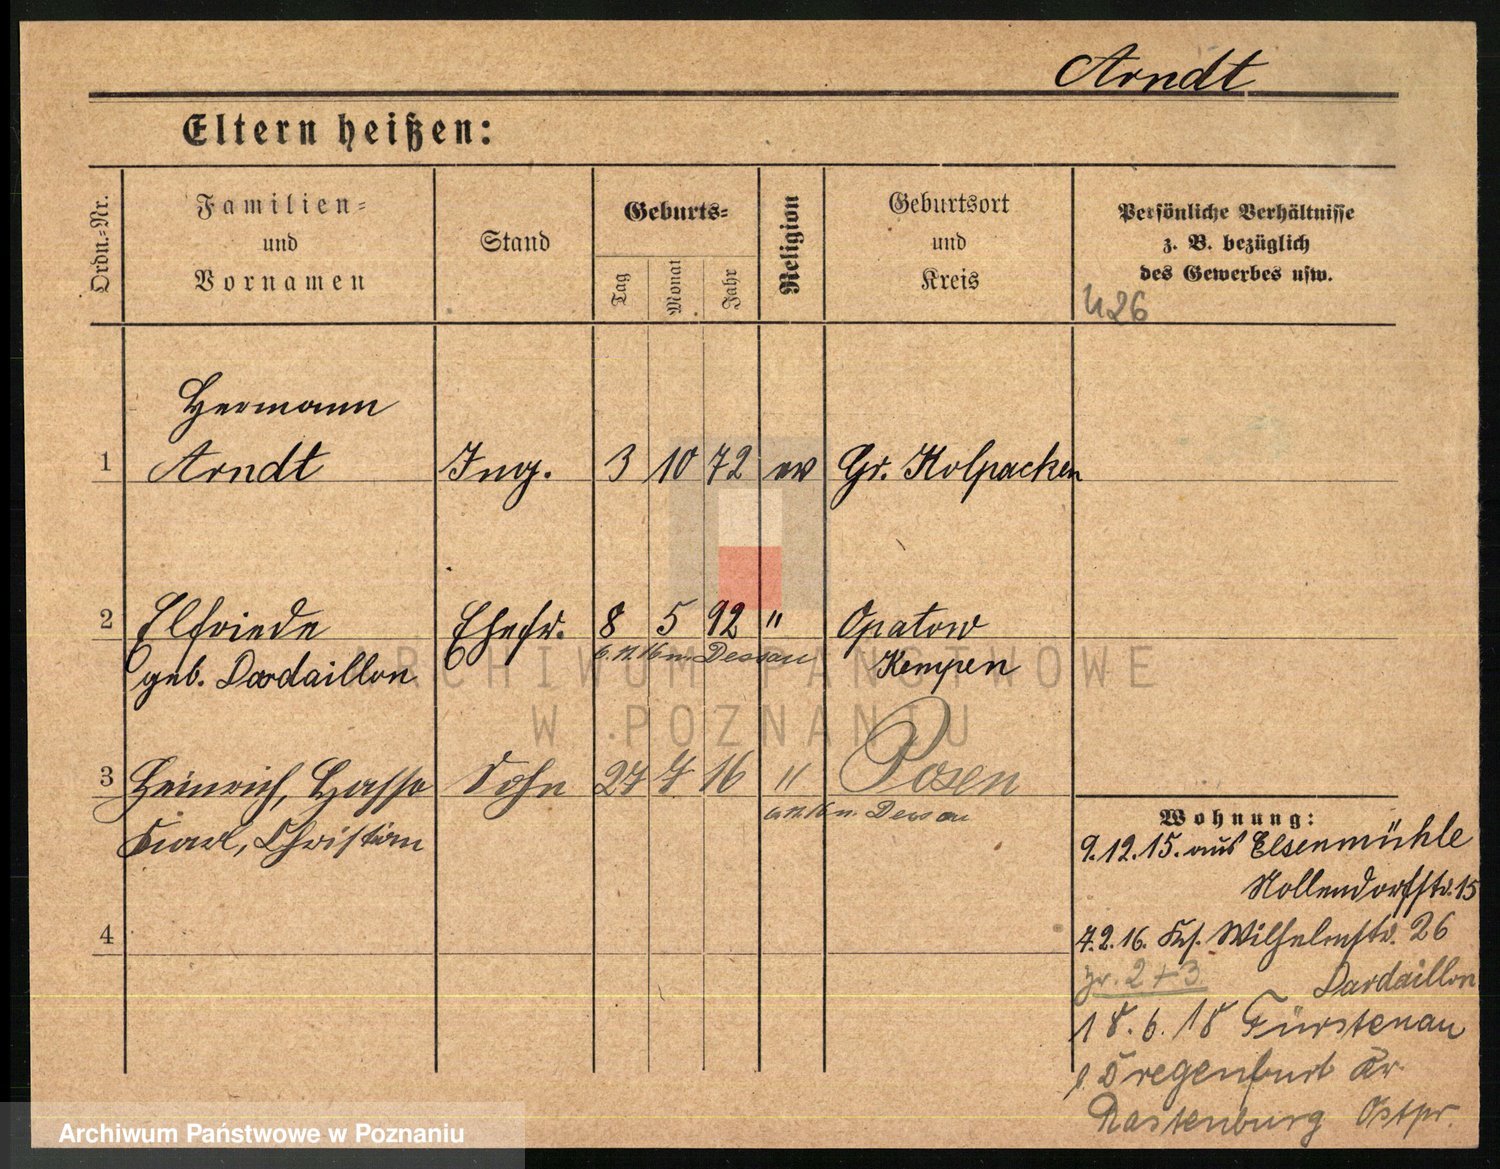 Arndt
Eltern heißen:
Ordn.-Nr.
Familien- und Vornamen
Stand
Geburts-
Tag
Monat
Jahr
Religion
Geburtsort und Kreis
Persönliche Verhältnisse
z. B. bezüglich
des Gewerbes usw.
Hermann
1 Arndt Ing. 3 10 72 ev Gr. Kolpacken
2 Elfriede Ehefr. 8 5 92 " Opatow
6.11.16 n. Dessau
geb. Dardaillon Kempen
3 Heinrich, Hasso Sohn 27 7 16 " Posen
6.11.16 n. Dessau
Karl, Christian
4
Wohnung:
9.12.15. aus Elsenmühle
Nollendorfstr. 15
7.2.16. Wilhelmstr. 26
Zr. 2+3 Dardaillon
18.6.18 Fürstenau
Kr.
Rastenburg Ostpr.
ARCHIWUM PAŃSTWOWE
W POZNANIU
Archiwum Państwowe w Poznaniu